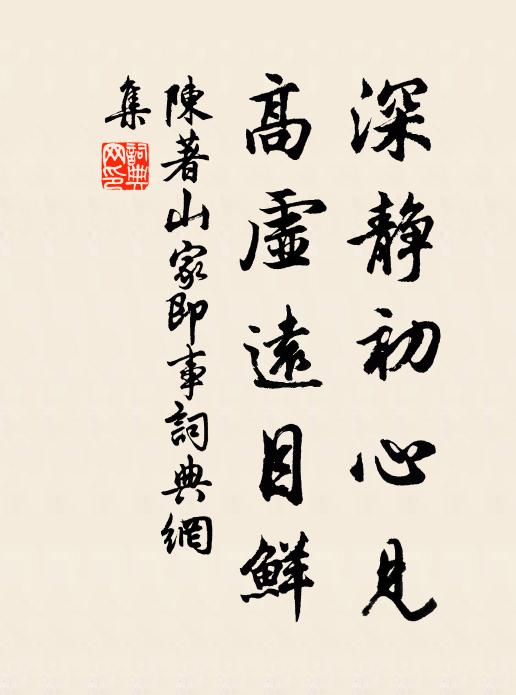 深靜初心見
高虛遠目鮮
陳著山家即事詞典網
集
詞典網印